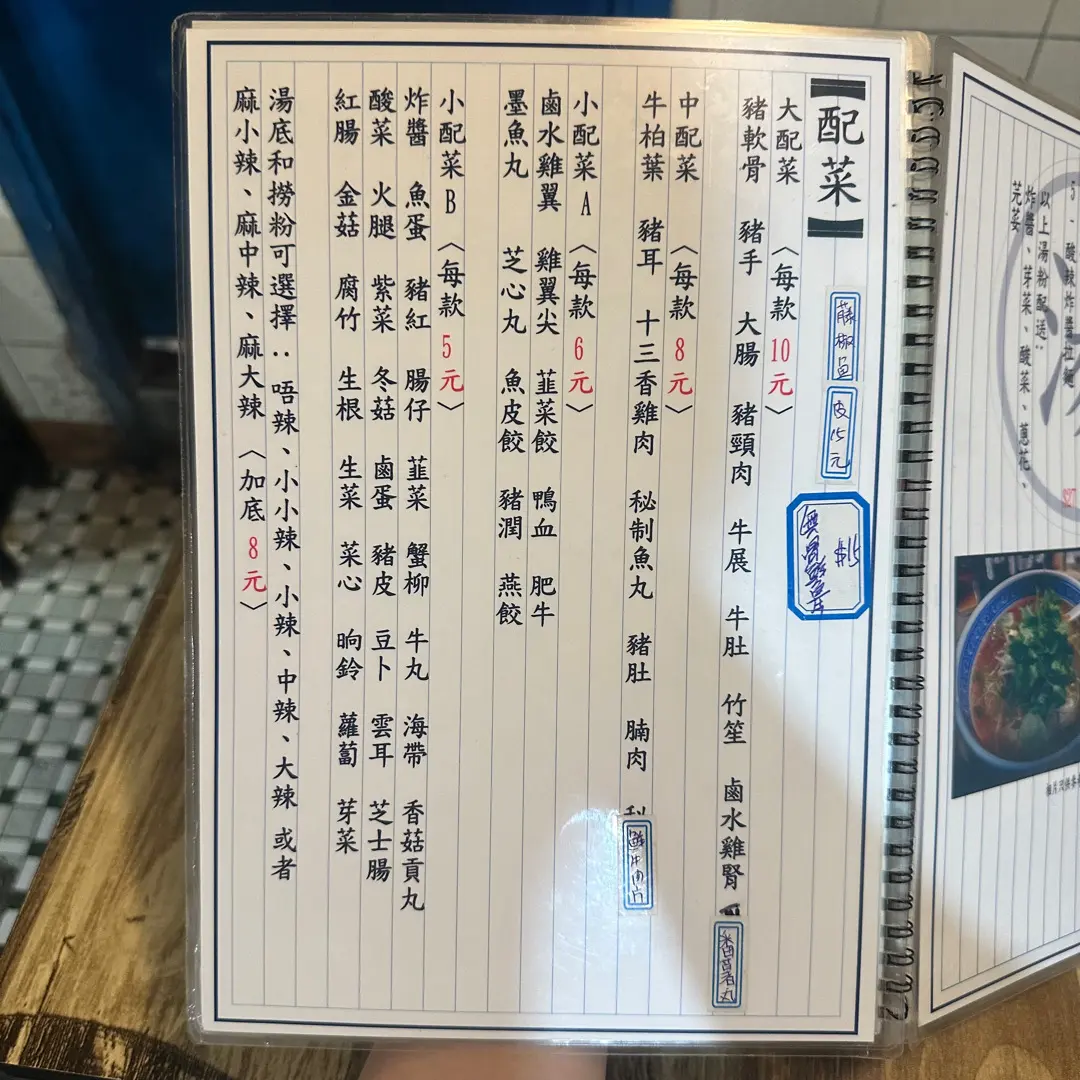 5、酸辣炸醬拉麵
以上湯粉配送：
炸醬、芽菜、酸菜、蔥花、
芫荽
【配菜】
藤椒魚
皮15元
$15
大配菜 〈每款10元〉
豬軟骨 豬手 大腸 豬頸肉 牛展 牛肚 竹笙 鹵水雞腎
中配菜 〈每款8元〉
牛柏葉 豬耳 十三香雞肉 秘制魚丸 豬肚 腩肉
鮮牛肉片
小配菜A〈每款6元〉
鹵水雞翼 雞翼尖 韮菜餃 鴨血 肥牛
墨魚丸 芝心丸 魚皮餃 豬潤 燕餃
小配菜B〈每款5元〉
炸醬 魚蛋 豬紅 腸仔 韮菜 蟹柳 牛丸 海帶 香菇貢丸
酸菜 火腿 紫菜 冬菇 鹵蛋 豬皮 豆卜 雲耳 芝士腸
紅腸 金菇 腐竹 生根 生菜 菜心 晌鈴 蘿蔔 芽菜
湯底和撈粉可選擇：唔辣、小小辣、小辣、中辣、大辣 或者
麻小辣、麻中辣、麻大辣〈加底8元〉